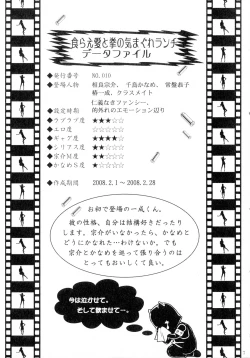 食らえ愛と拳の気まぐれランチ
データファイル
◆発行番号　NO.010
◆登場人物　相良宗介、千鳥かなめ、常盤恭子
椿一成、クラスメイト
仁義なきファンシー、
◆設定時期　的外れのエモーション辺り
◆ラブラブ度　★★★☆☆
◆エロ度　☆☆☆☆☆
◆ギャグ度　★★★★☆
◆シリアス度　★★☆☆☆
◆宗介M度　★★☆☆☆
◆かなめS度　★☆☆☆☆
◆作成期間　2008.2.1～2008.2.28
お初で登場の一成くん。
彼の性格、自分は結構好きだったり
します。宗介がいなかったら、かなめと
どうにかなれた…わけないか。でも
宗介とかなめを巡って張り合うのは
とってもおいしくて良い。
今は泣かせて。
そして飲ませて…。